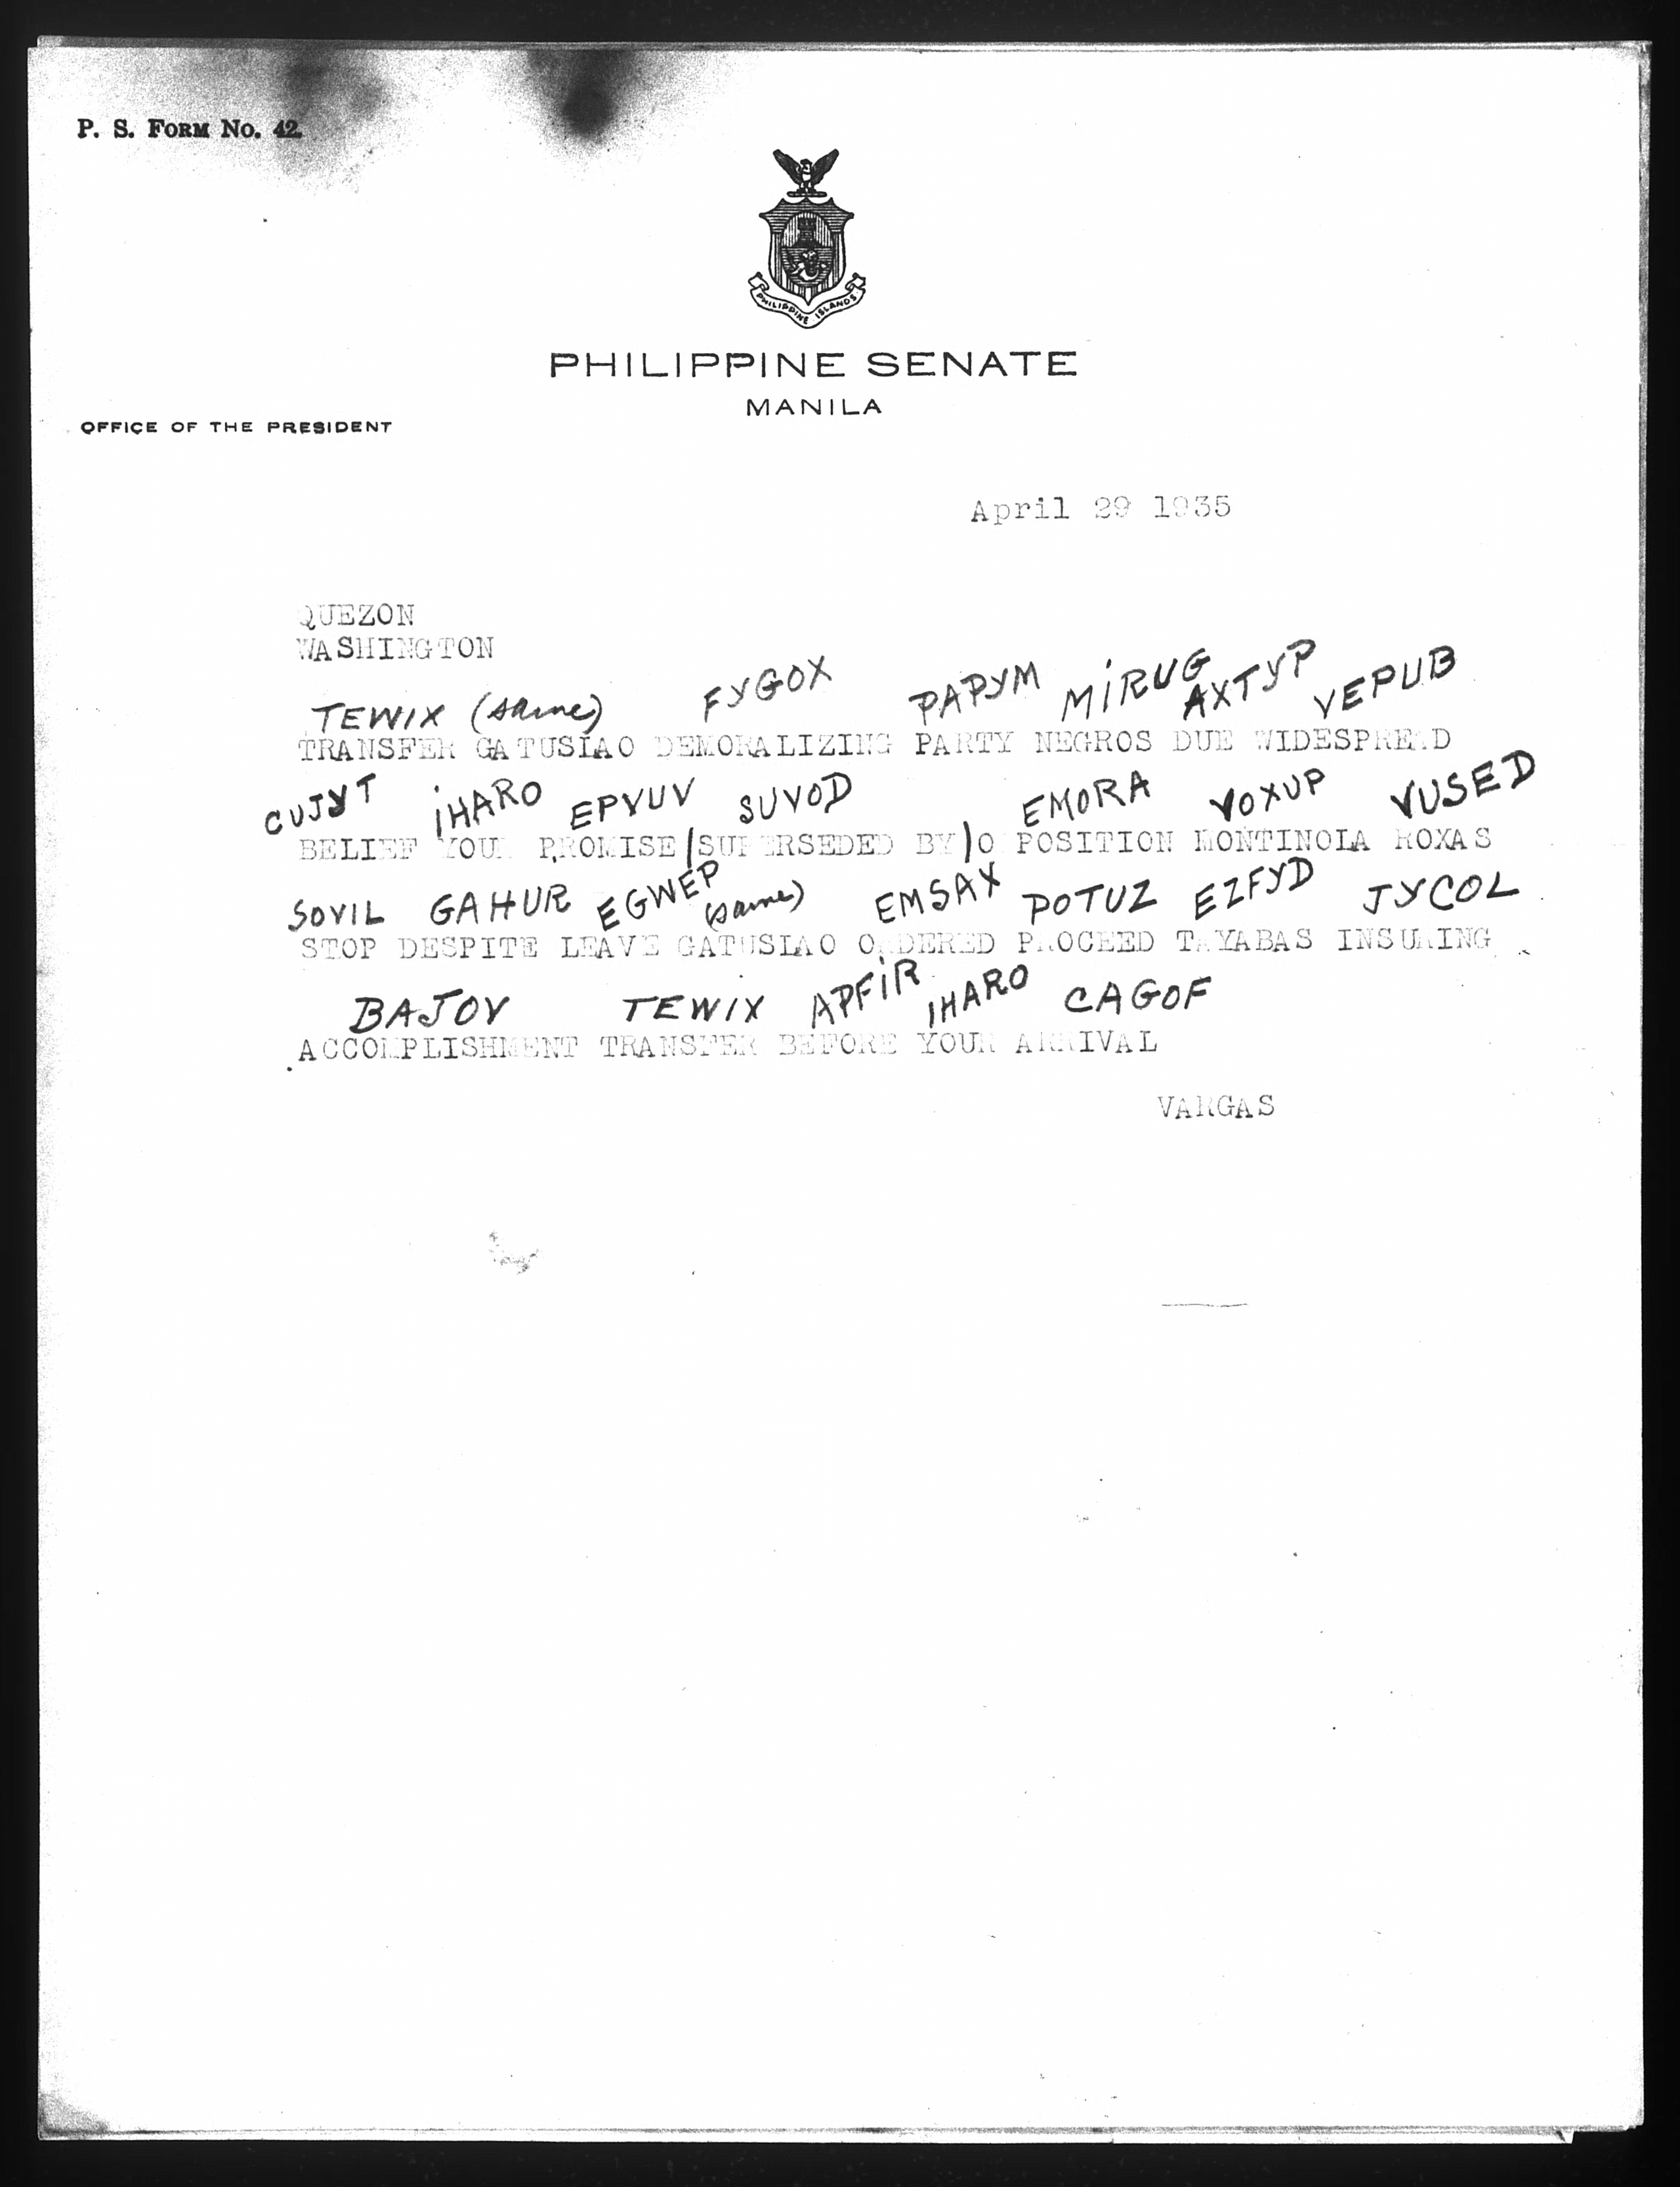 P. S. FORM NO. 42
PHILIPPINE ISLANDS
PHILIPPINE SENATE
MANILA
OFFICE OF THE PRESIDENT
April 29 1935
QUEZON
WASHINGTON
TEWIX (same) FYGOX PAPYM MIRUG AXTYP VEPUB
TRANSFER GATUSIAO DEMORALIZING PARTY NEGROS DUE WIDESPREAD
CUJYT IHARO EPVUV SUVOD EMORA VOXUP VUSED
BELIEF YOUR PROMISE (SUPERSEDED BY) O POSITION MONTINOLA ROXAS
SOVIL GAHUR EGWEP (same) EMSAX POTUZ EZFYD JYCOL
STOP DESPITE LEAVE GATUSIAO ORDERED PROCEED TAYABAS INSURING
BAJOV TEWIX APFIR IHARO CAGOF
ACCOMPLISHMENT TRANSFER BEFORE YOUR ARRIVAL
VARGAS